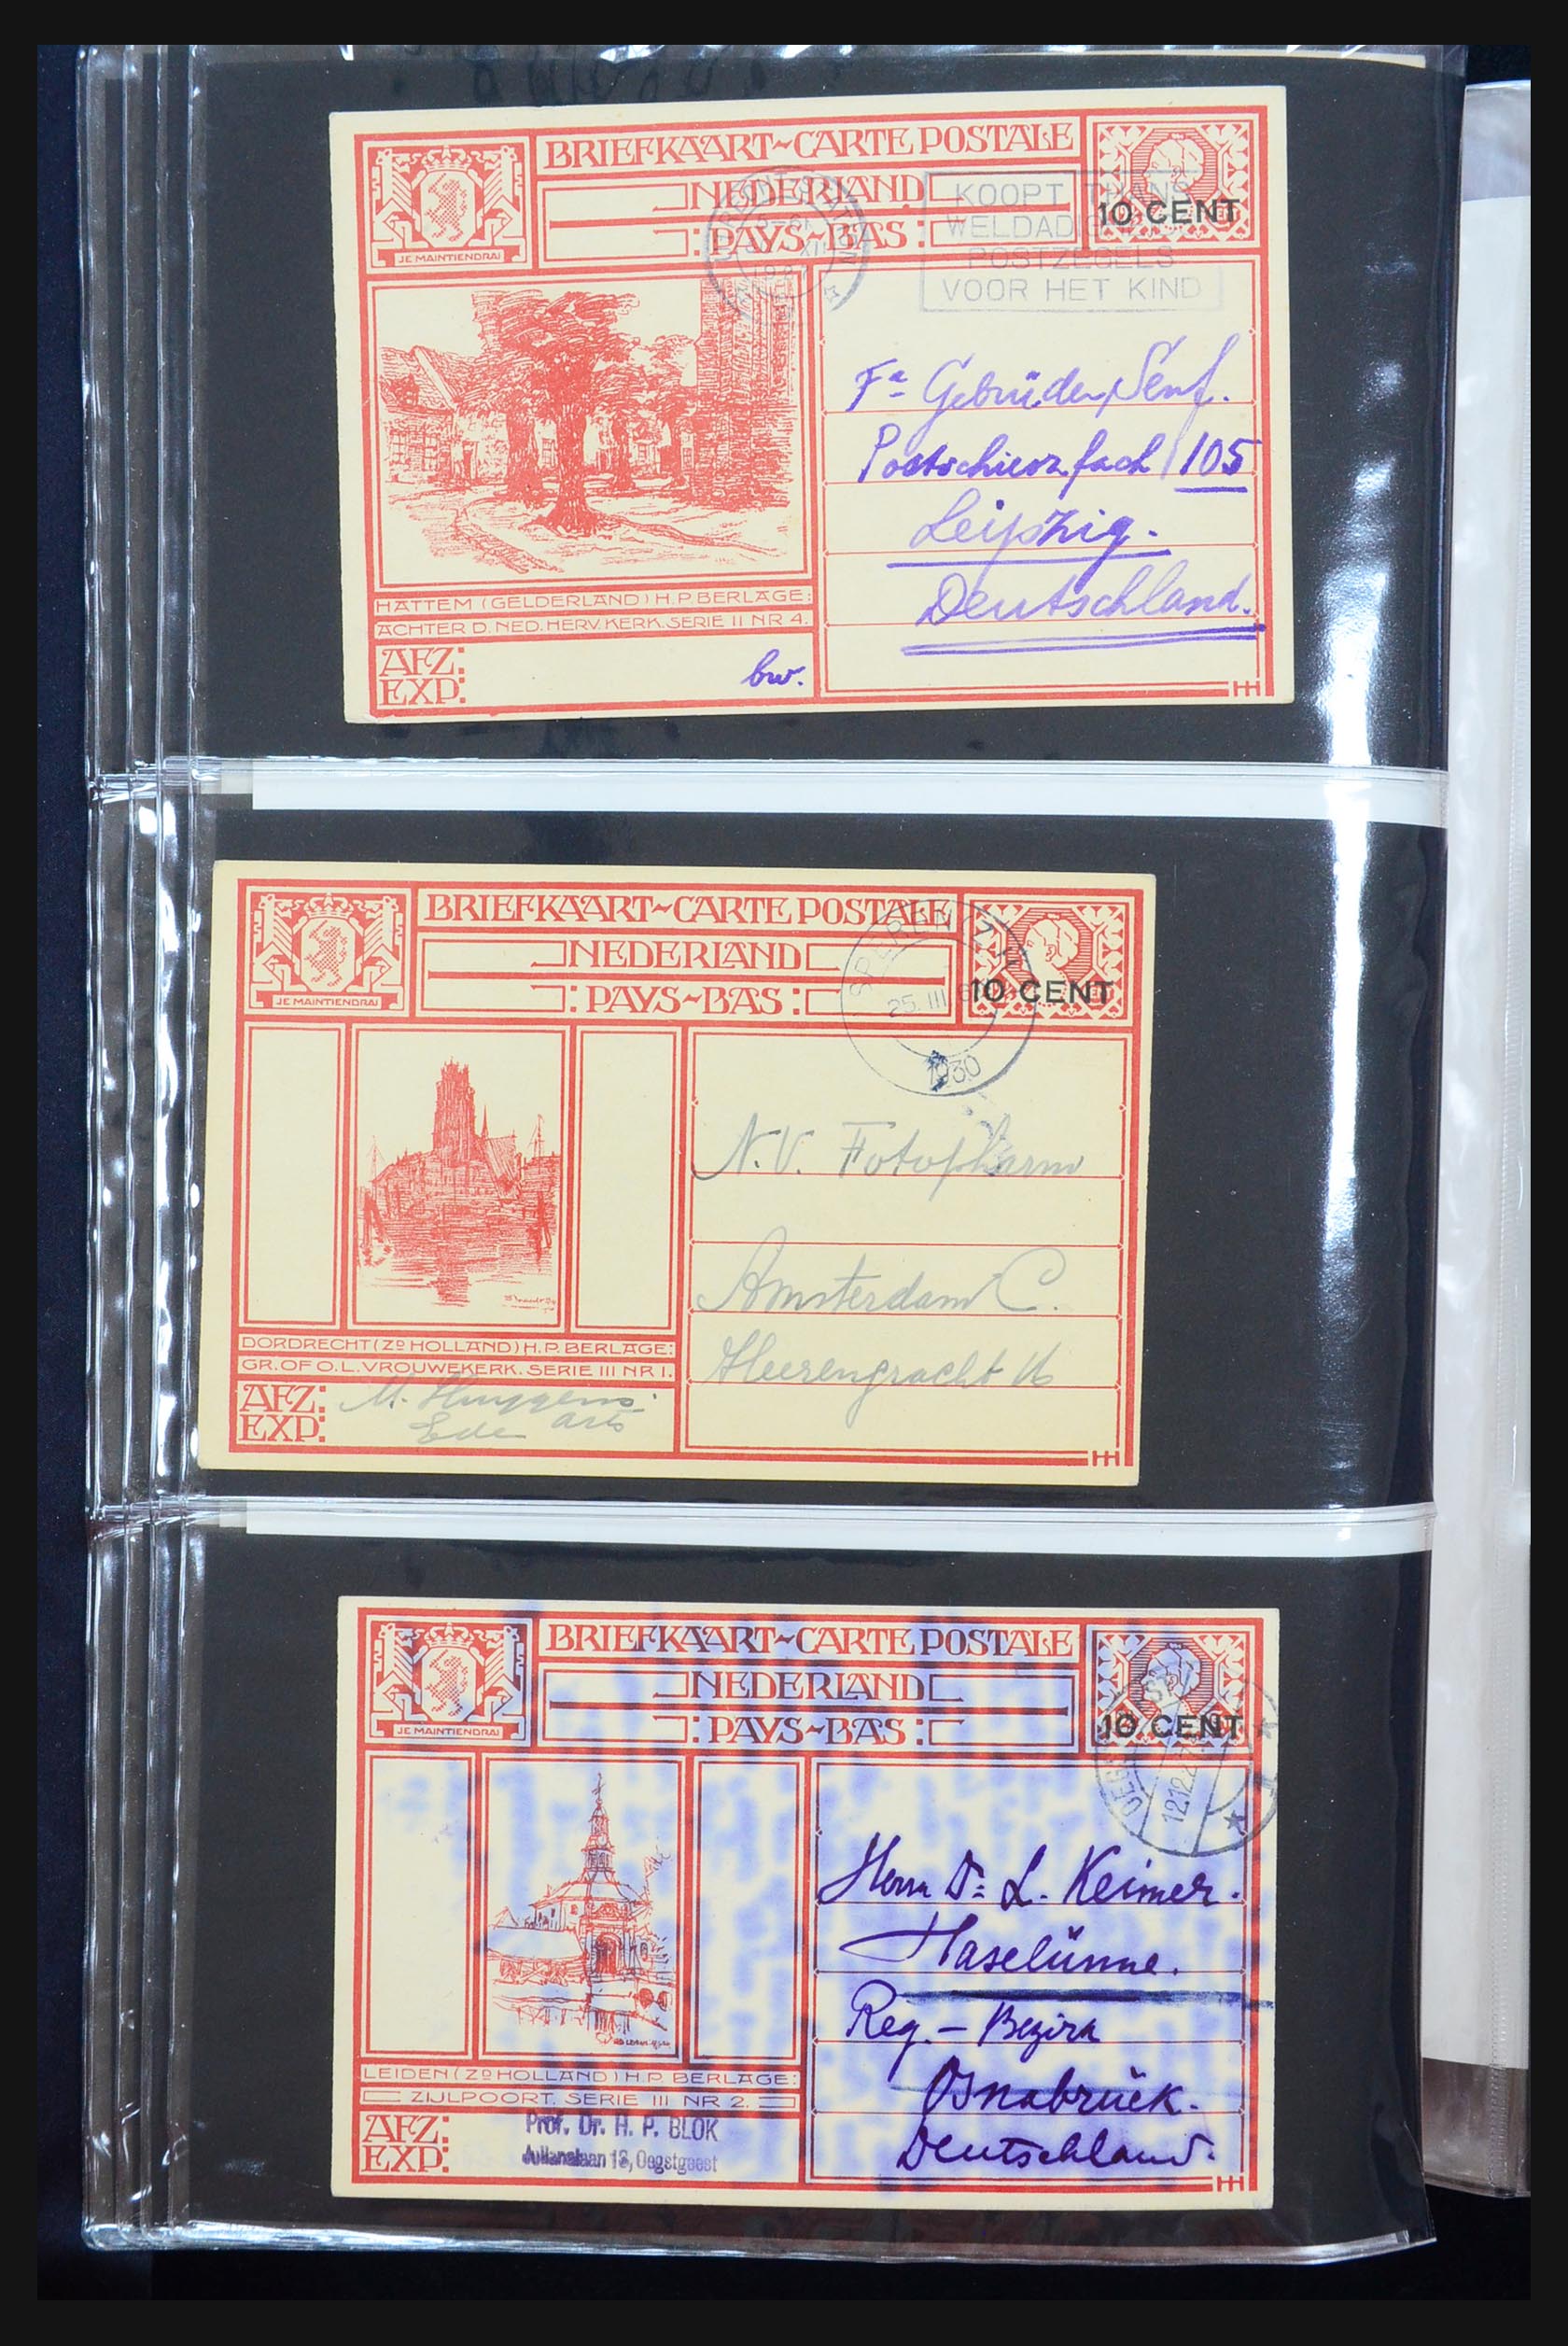 BRIEFKAART~CARTE POSTALE
NEDERLAND
PAYS~BAS
JE MAINTIENDRAI
10 CENT
KOOPT THANS
WELDADIGHEIDS
POSTZEGELS
VOOR HET KIND
Fa Gebrüder Senf.
Postschliessfach 105
Leipzig.
Deutschland.
HATTEM (GELDERLAND) H.P. BERLAGE:
ACHTER D. NED. HERV. KERK. SERIE II NR 4.
AFZ:
EXP:
bw.
HH
BRIEFKAART~CARTE POSTALE
NEDERLAND
:PAYS~BAS:
JE MAINTIENDRAI
10 CENT
25. III
1930
N.V. Fotopharm
Amsterdam C.
Heerengracht
DORDRECHT (ZD HOLLAND) H.P. BERLAGE:
GR. OF O.L. VROUWEKERK. SERIE III NR 1.
AFZ: M. Huygens
EXP: Ede arts
HH
BRIEFKAART~CARTE POSTALE
NEDERLAND
:PAYS~BAS:
JE MAINTIENDRAI
10 CENT
12.12.2
Herrn Dr. L. Keimer.
Haselünne.
Reg. - Bezirk
Osnabrück.
Deutschland.
LEIDEN (ZD HOLLAND) H.P. BERLAGE:
ZIJLPOORT. SERIE III NR 2.
AFZ:
EXP:
Prof. Dr. H. P. BLOK
Julianalaan 13, Oegstgeest
HH